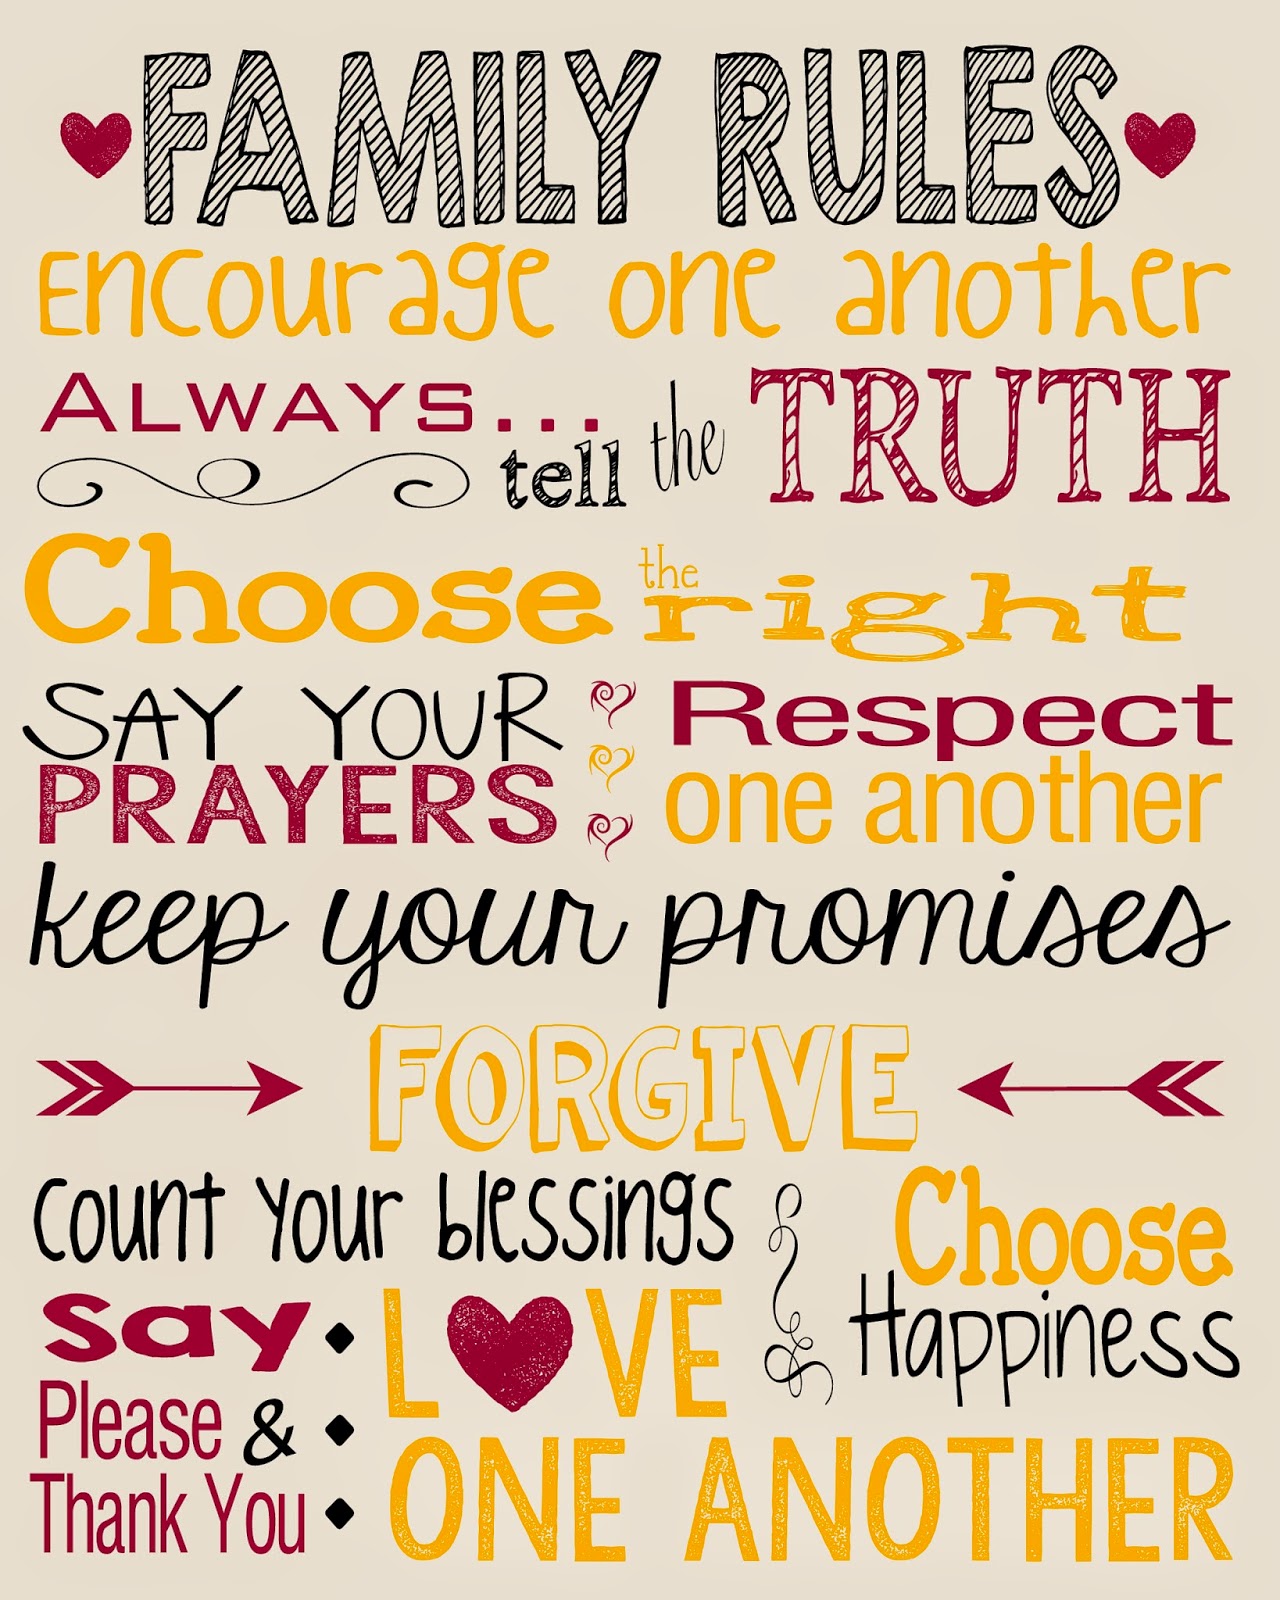 FAMILY RULES
Encourage one another
ALWAYS...
tell the TRUTH
Choose the right
SAY YOUR
PRAYERS
Respect
one another
keep your promises
FORGIVE
Count your blessings
Choose
Happiness
Say
Please &
Thank You
L♥VE
ONE ANOTHER